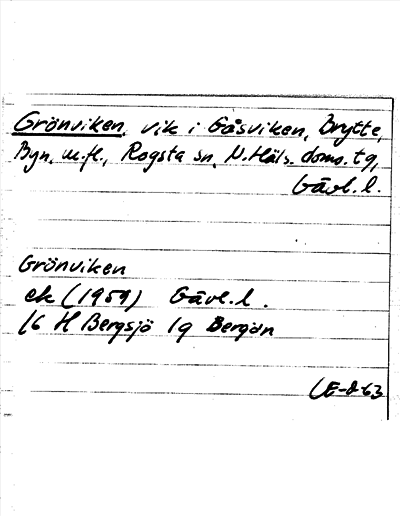 Grönviken, vik i Gåsviken, Brytte,
Byn, m.fl., Rogsta sn, N. Häls. doms. tg,
Gävl. l.
Grönviken
ek (1959) Gävl. l.
16 H Bergsjö 1g Bergön